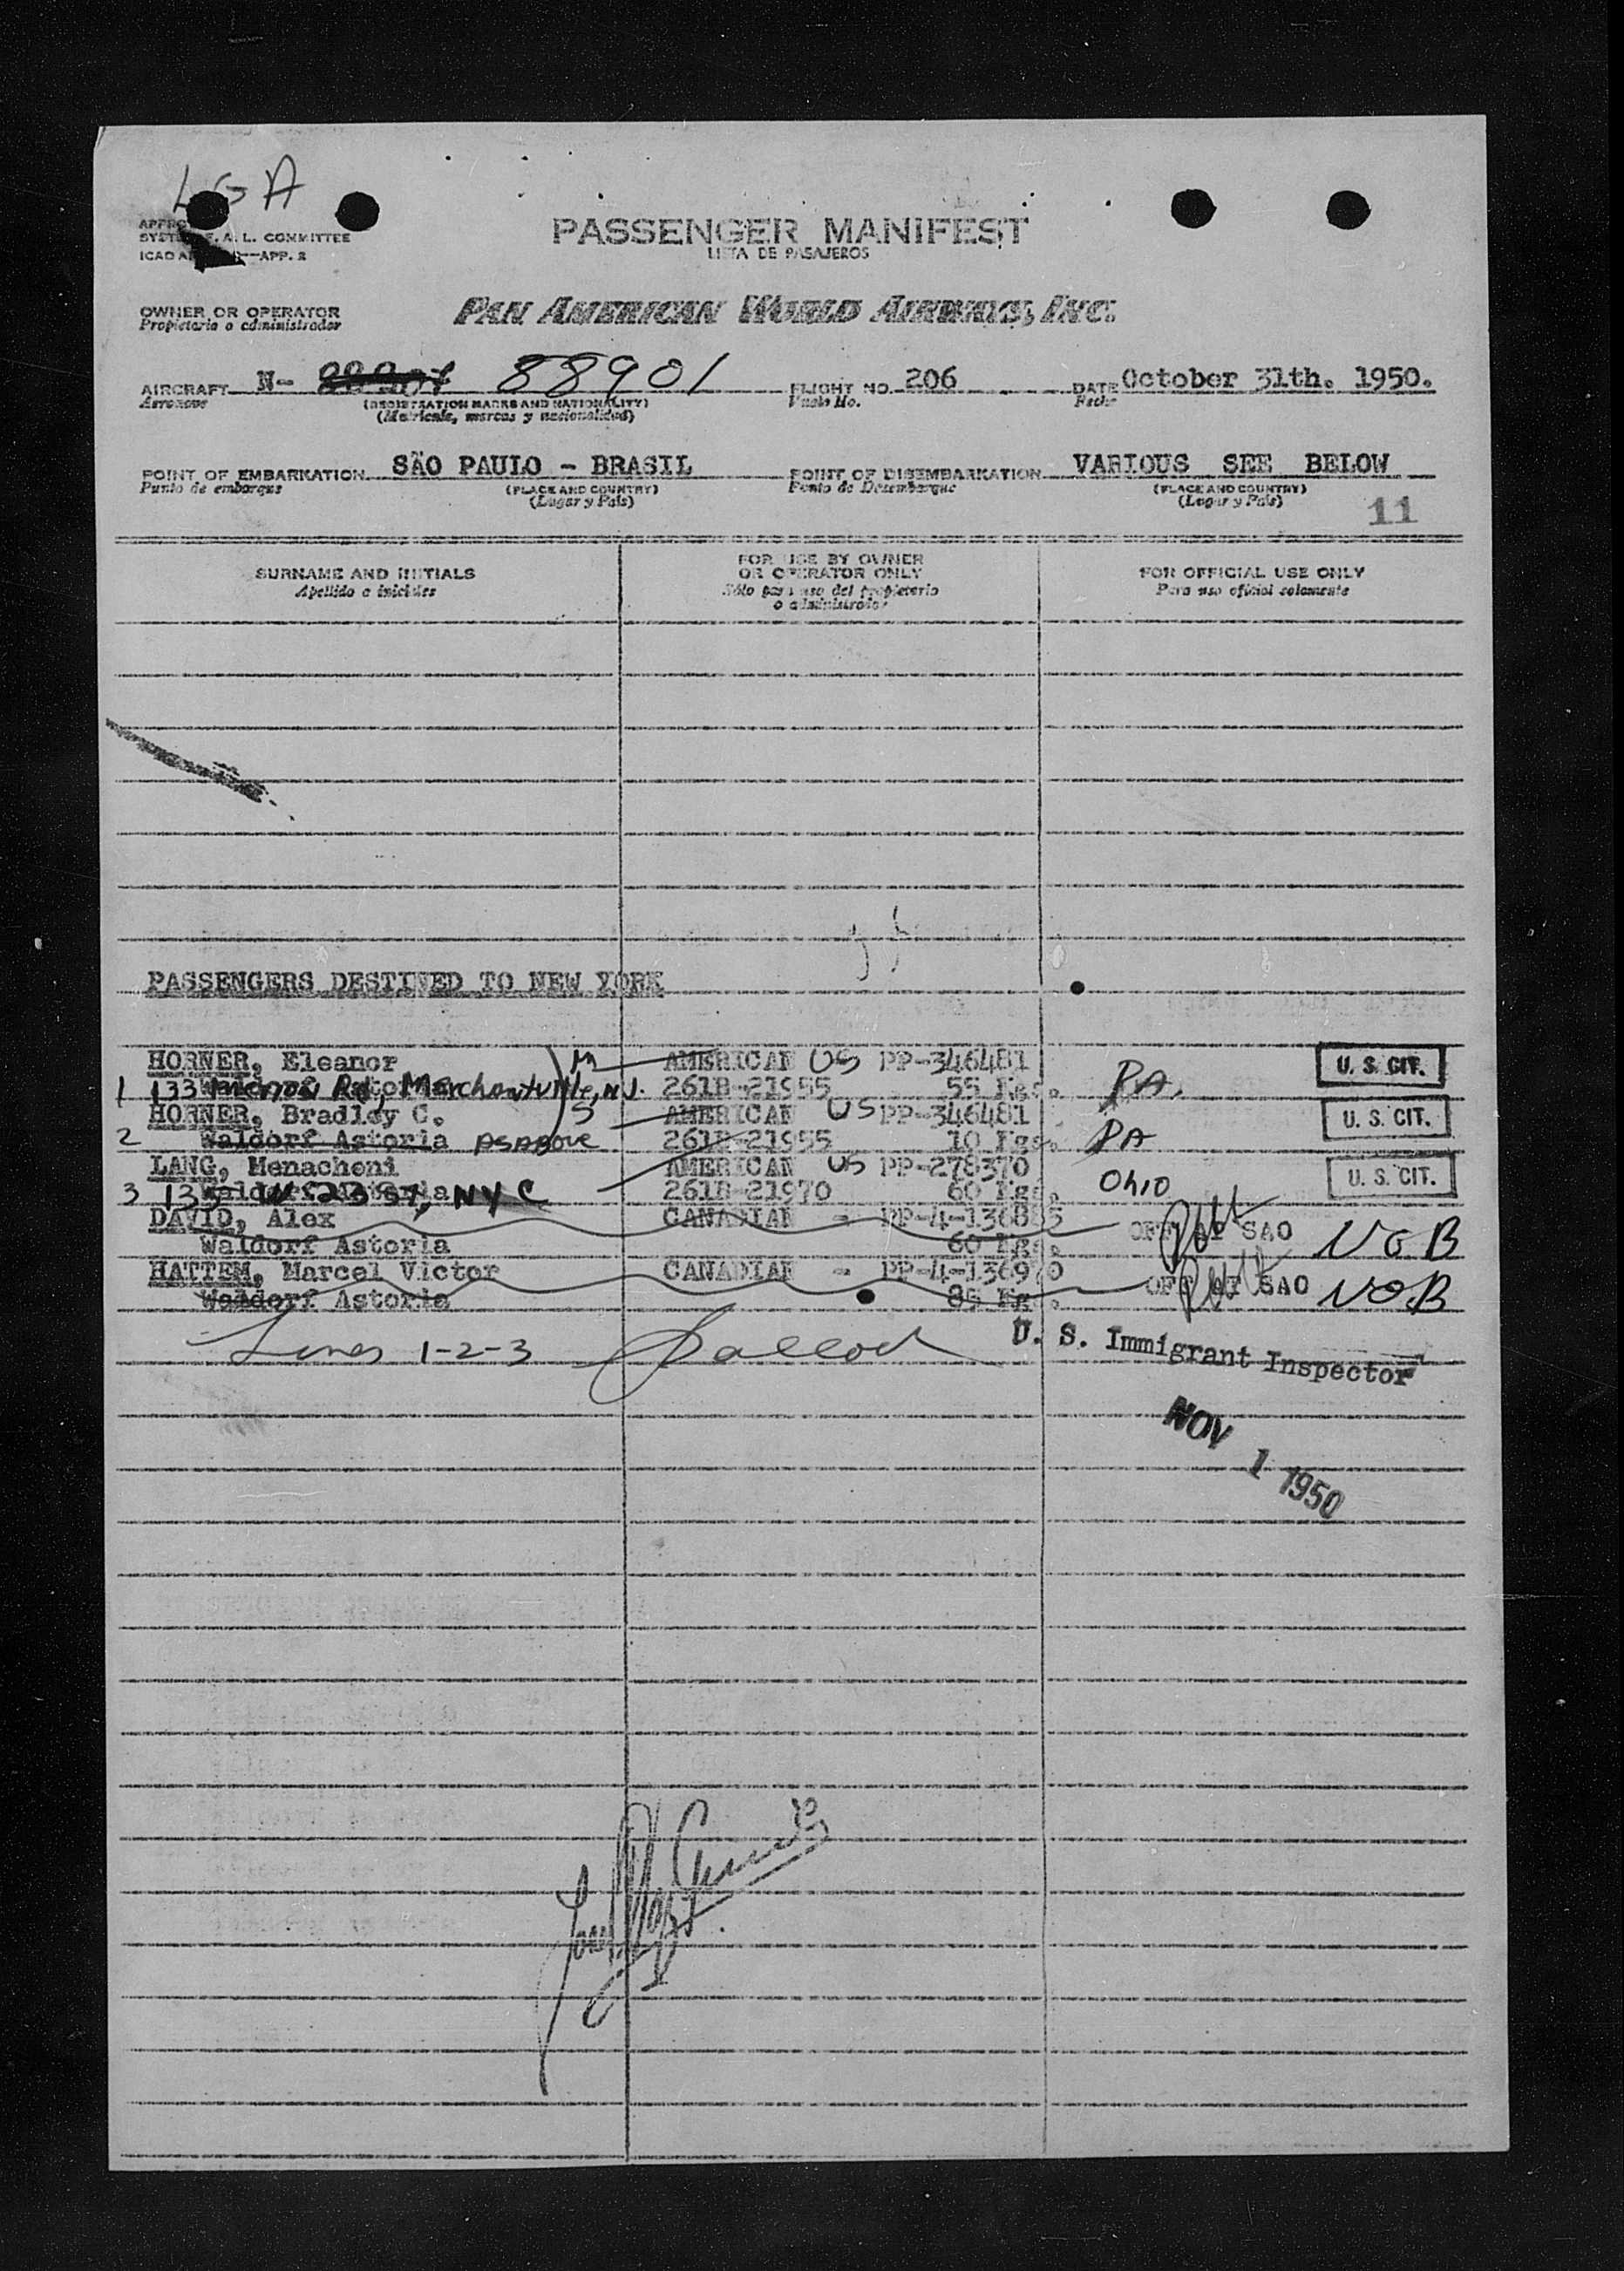 LGA
SYSTEM F. A. L. COMMITTEE
ICAO —APP. 2
PASSENGER MANIFEST
LISTA DE PASAJEROS
OWNER OR OPERATOR
Propietario o administrador
PAN AMERICAN WORLD AIRWAYS, INC.
AIRCRAFT N- 88901 FLIGHT NO. 206 DATE October 31th. 1950.
Aeronave (REGISTRATION MARKS AND NATIONALITY) Vuelo No. Fecha
(Matricula, marcas y nacionalidad)
POINT OF EMBARKATION SÃO PAULO - BRASIL POINT OF DISEMBARKATION VARIOUS SEE BELOW
Punto de embarque (PLACE AND COUNTRY) Punto de Desembarque (PLACE AND COUNTRY)
(Lugar y País) (Lugar y País)
11
SURNAME AND INITIALS
Apellido e iniciales
FOR USE BY OWNER
OR OPERATOR ONLY
Sólo para uso del propietario
o administrador
FOR OFFICIAL USE ONLY
Para uso oficial solamente
PASSENGERS DESTINED TO NEW YORK
HORNER, Eleanor M AMERICAN US PP-346481 U. S. CIT.
1 133 Rd, Merchantville, N.J. 261B-21955 55 Kgs. PA.
HORNER, Bradley C. S AMERICAN US PP-346481 U. S. CIT.
2 Waldorf Astoria AS ABOVE 261B-21955 10 Kgs. PA
LANG, Menachoni AMERICAN US PP-278370 U. S. CIT.
3 NYC 261B-21970 60 Kgs. Ohio
DAVID, Alex CANADIAN - PP-4-136885 OFF AT SAO NOB
Waldorf Astoria 60 Kgs.
HATTEM, Marcel Victor CANADIAN - PP-4-136970 OFF AT SAO NOB
Waldorf Astoria 85 Kgs.
Lines 1-2-3 U. S. Immigrant Inspector
NOV 1 1950